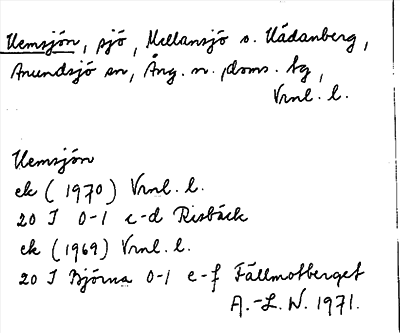 Hemsjön, sjö, Mellansjö o. Uådanberg,
Anundsjö sn, Ång. n. doms. tg,
Vrnl. l.
Hemsjön
ek (1970) Vrnl. l.
20 I 0-1 c-d Risbäck
ek (1969) Vrnl. l.
20 I Björna 0-1 e-f Fällmotberget
A.-L. W. 1971.